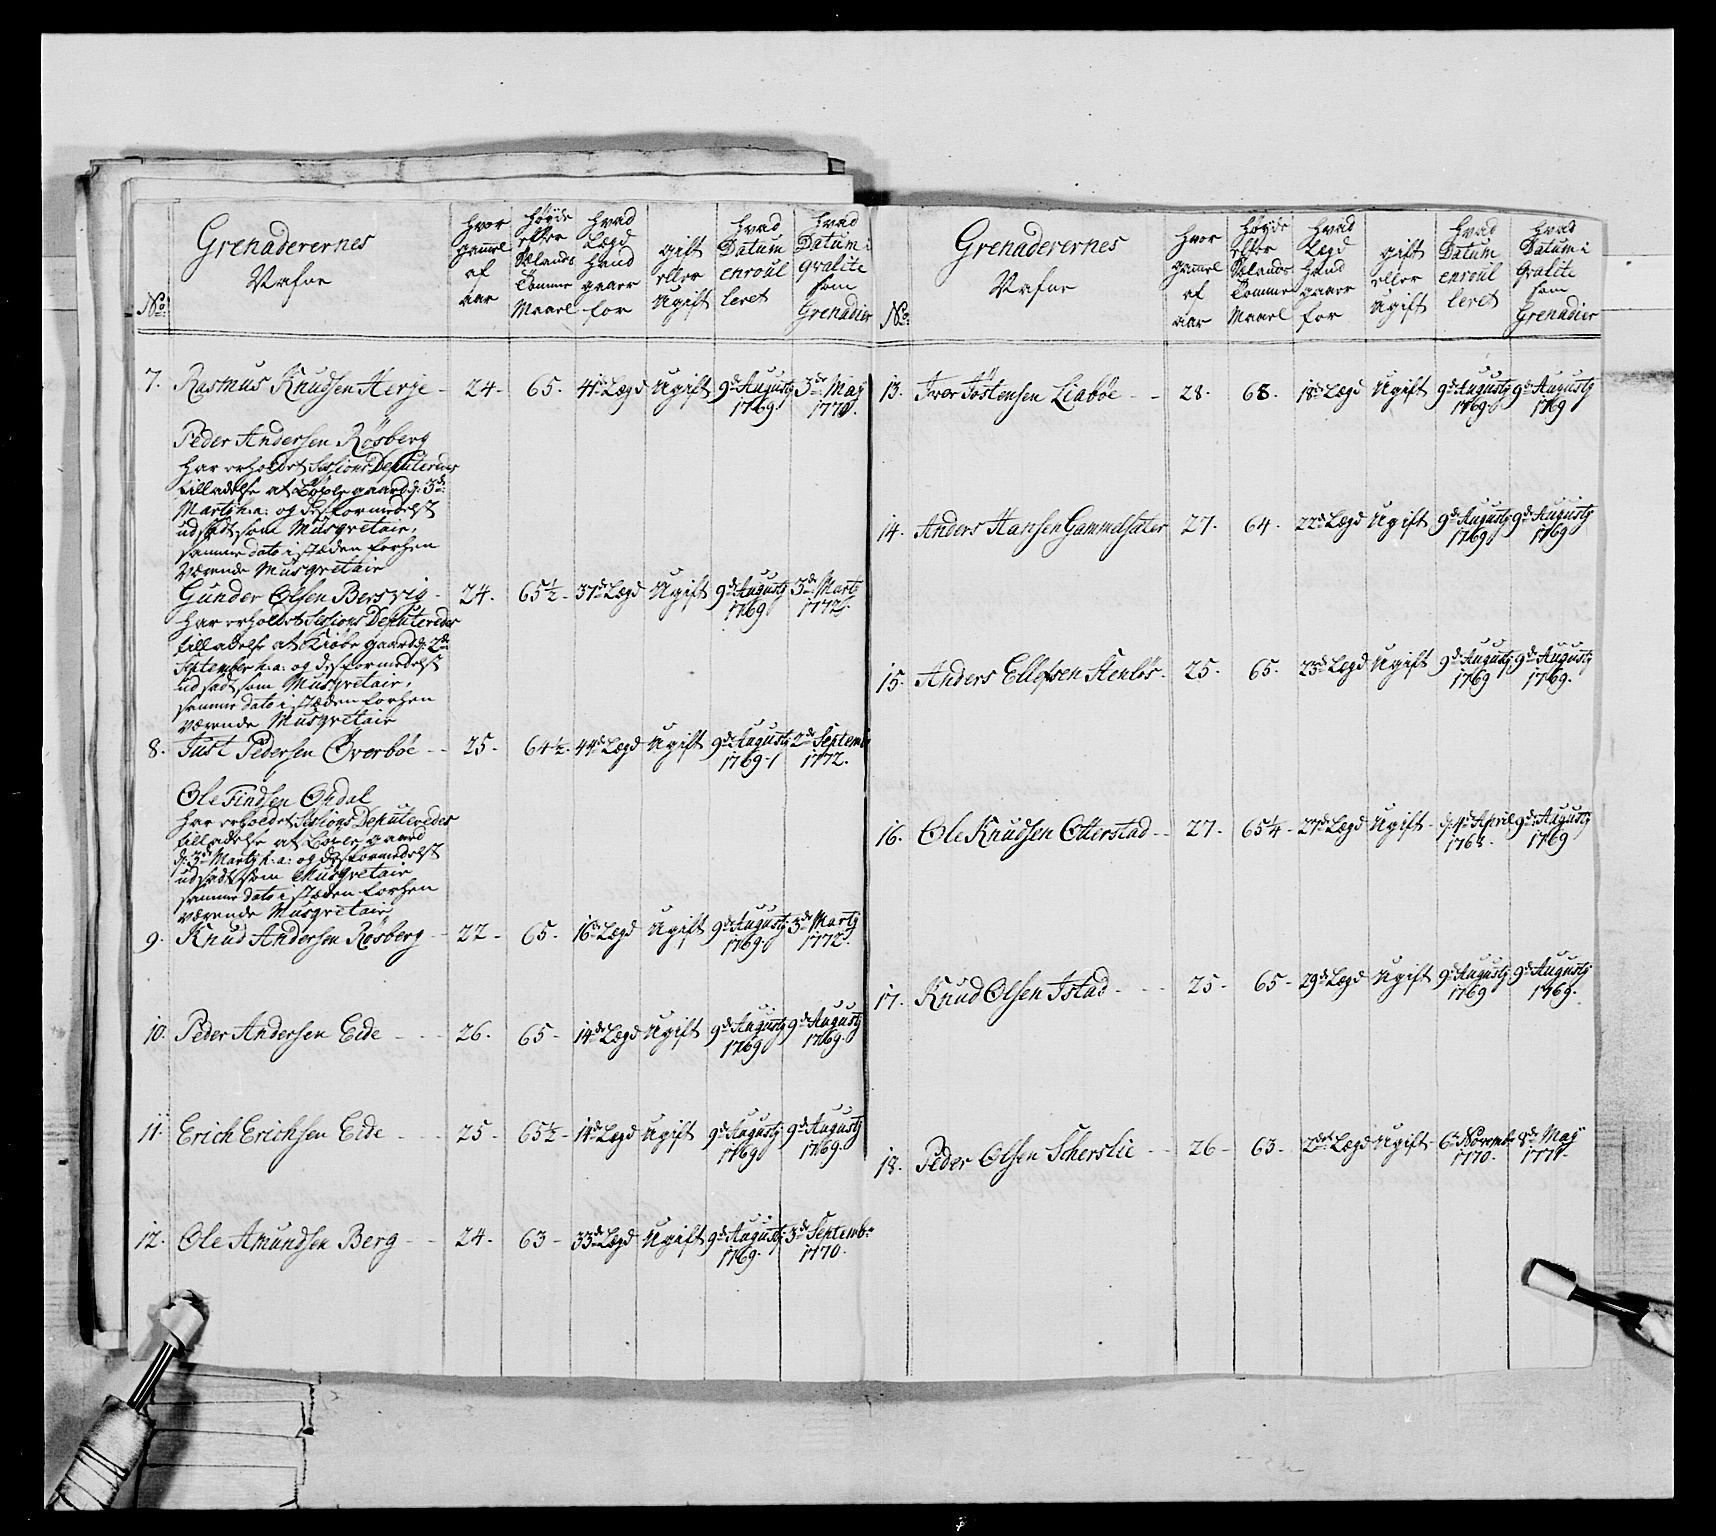 No:
Grenaderernes
Nafne
hvor
gamel
af
aar
høyde
efter
Sælands
Tomme
Maael
hvad
Lægd
hand
gaaer
for
gift
eller
Ugift
hvad
Datum
enroul
leret
hvad
Datum i
qvalite
som
Grenadier
7. Rasmus Knudsen Herje - 24. 65. 41de Lægd Ugift 9de Augustj 1769. 3de Maij 1770.
Peder Andersen Røsberg
har erholdet Sessions Deputeredes
tilladelse at Bøxle gaard d: 3de
Martj h: a: og desformedelst
udsadt som Musqvetair,
samme dato i stæden forhen
værende Musqvetair
Gunder Olsen Bersvig - 24. 65½ - 37de Lægd Ugift 9de Augustj 1769 3de Martj 1772.
har erholdet Sessions Deputeredes
tilladelse at Kiøbe gaard d: 2de
September h: a: og desformedelst
udsadt som Musqvetair,
samme dato i stæden forhen
værende Musqvetair
8. Just Pedersen Øverbøe - - 25. 64½. 44de Lægd Ugift 9de Augustj 1769. 2de Septemb 1772.
Ole Findsen Opdal
har erholdet Sessions Deputeredes
tilladelse at Bøxle gaard
d: 3de Martj h: a: og desformedelst
udsadt som Musqvetair
samme dato i stæden forhen
værende Musqvetair
9. Knud Andersen Røsberg - 22 - 65. 16de Lægd Ugift 9de Augustj 1769. 3de Martj 1772.
10. Peder Andersen Eide - - - 26. 65 - 14de Lægd Ugift 9de Augustj 1769 9de Augustj 1769.
11. Erich Erichsen Eide - - - 25 - 65½ - 14de Lægd Ugift 9de Augustj 1769 9de Augustj 1769.
12. Ole Amundsen Berg - - 24 - 63 - 33de Lægd Ugift 9de Augustj 1769. 3de Septembr 1770.
No:
Grenaderernes
Nafne
hvor
gamel
af
aar
høyde
efter
Sælands
Tomme
Maael
hvad
Lægd
hand
gaaer
for
gift
eller
Ugift
hvad
Datum
enroul
leret
hvad
Datum i
qvalite
som
Grenadier
13. Iver Jøstensen Liabøe - - 28. 68. 18de Lægd Ugift 9de Augustj 1769. 9de Augustj 1769
14. Anders Hansen Gammelsæter 27. 64. 22de Lægd Ugift 9de Augustj 1769 9de Augustj 1769
15. Anders Ellefsen Stenløs. 25. 65. 23de Lægd Ugift 9de Augustj 1769 9de Augustj 1769.
16. Ole Knudsen Otterstad - - 27. 65¼ - 27de Lægd Ugift - d: 4de April 1768. 9de Augustj 1769
17. Knud Olsen Istad - - - 25 - 65 - 29de Lægd Ugift 9de Augustj 1769 9de Augustj 1769.
18. Peder Olsen Scherslie - - 26 - 63. 2det Lægd Ugift - 6te Novembr 1770. 8de Maij 1771.